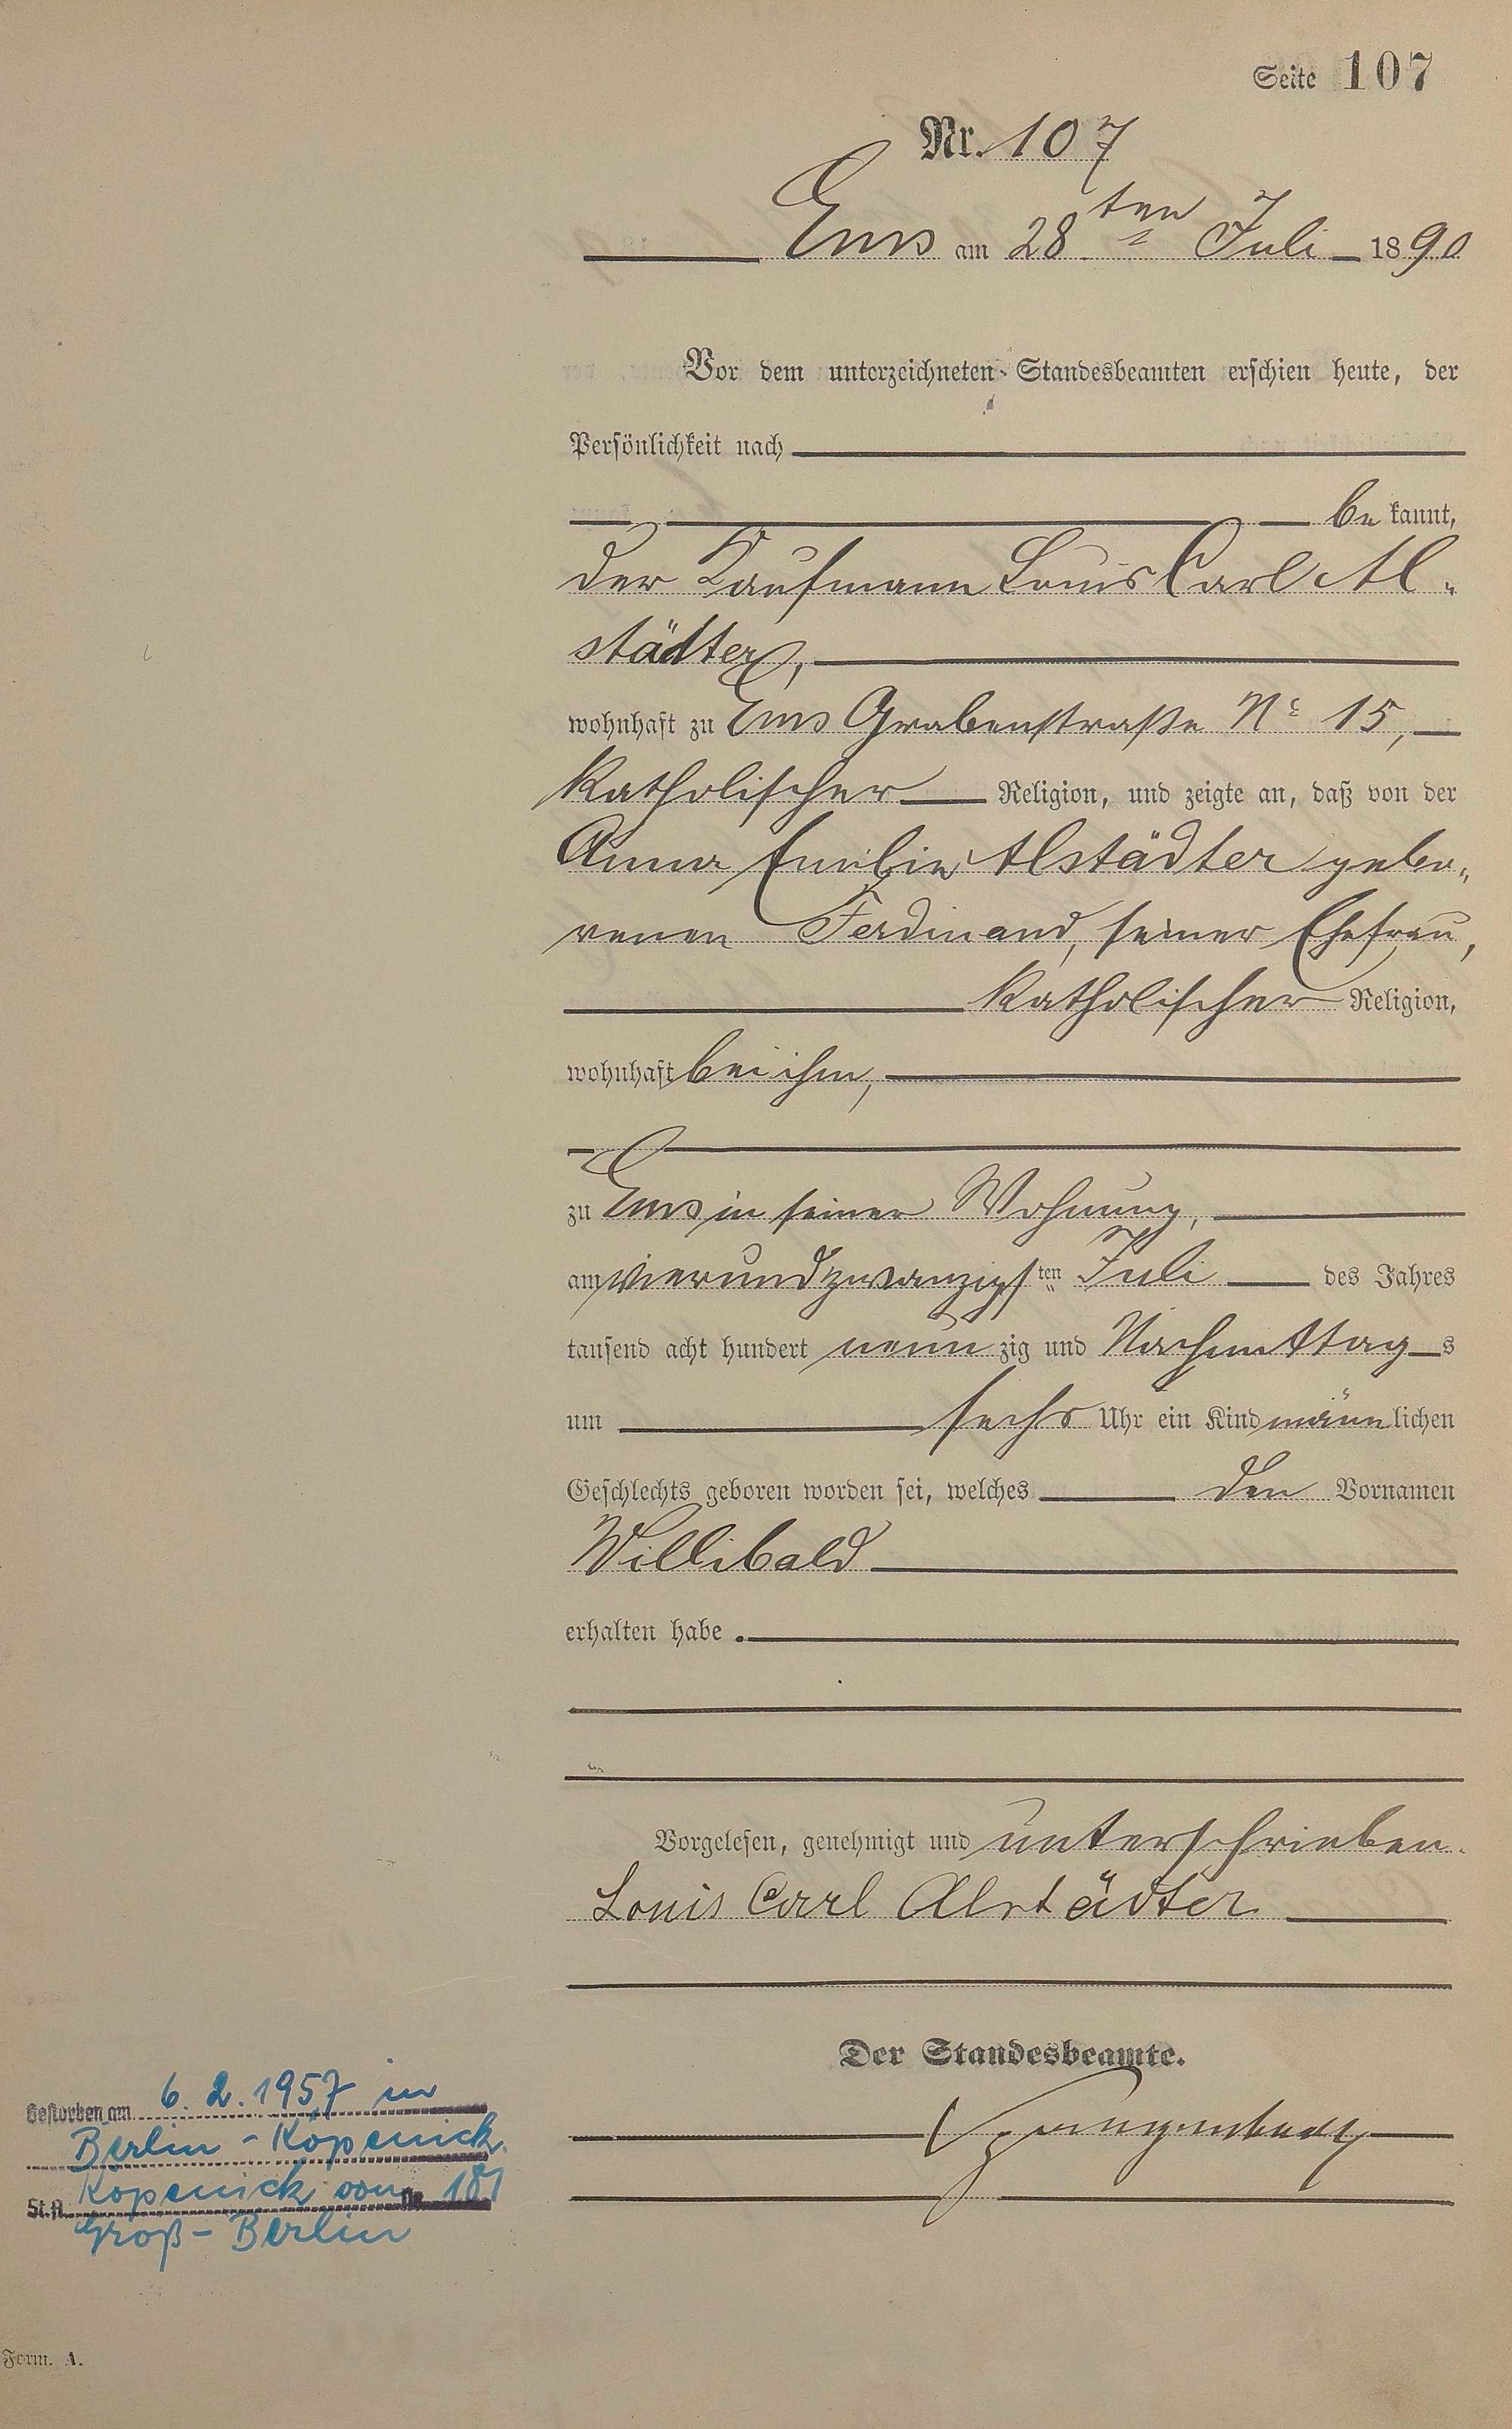 Seite 107
Nr. 107
Ems am 28ten Juli 1890
Vor dem unterzeichneten Standesbeamten erschien heute, der
Persönlichkeit nach
be kannt,
der Kaufmann Louis Carl Al-
städter,
wohnhaft zu Ems Grabenstraße No 15,
katholischer Religion, und zeigte an, daß von der
Anna Emilie Alstädter gebo-
renen Ferdinand, seiner Ehefrau,
katholischer Religion,
wohnhaft bei ihm,
zu Ems in seiner Wohnung,
am vierundzwanzigsten Juli des Jahres
tausend acht hundert neunzig und Nachmittags
um sechs Uhr ein Kind männlichen
Geschlechts geboren worden sei, welches den Vornamen
Willibald
erhalten habe.
Vorgelesen, genehmigt und unterschrieben.
Louis Carl Alstädter
Der Standesbeamte.
Gestorben am 6.2.1957 in
Berlin-Köpenick.
St.A. Köpenick von Nr. 181
Groß-Berlin
Form. A.